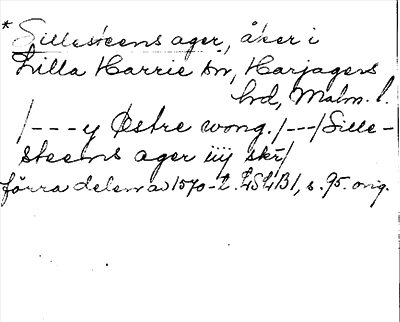 * Sillesteens ager, åker i
Lilla Harrie sn, Harjagers
hd, Malm. l.
/---y Østre wong. /---/ Sille-
steens ager iiij skr/
förra delen av 1570-t. LSLB 1, s. 95. orig.